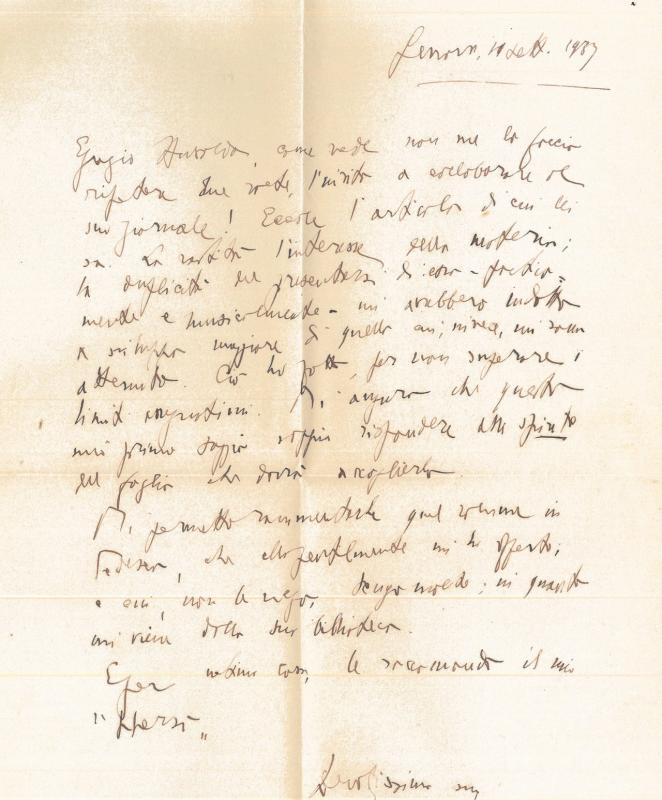 Genova, 10 Sett. 1937
Egregio come vede non me lo faccio
ripetere due volte, l'invito a collaborare al
suo giornale! Eccole l'articolo di cui lei
sa. La vastità l'interesse della materia;
la duplicità del presentarsi di essa -
mente e musicalmente - mi avrebbero indotto
a sviluppo maggiore di quello cui, invece, mi sono
attenuto. Ciò ho fatto, per non superare i
limiti Mi auguro che questo
mio primo saggio sappia rispondere allo spirito
del foglio che dovrà accoglierlo.
Mi permetto rammentarle quel volume in
tedesco, che ella gentilmente mi ha offerto;
e cui, non le nego, tengo molto; in quanto
mi viene dalla sua biblioteca.
E per ultimo le raccomando il mio
Devotissimo suo